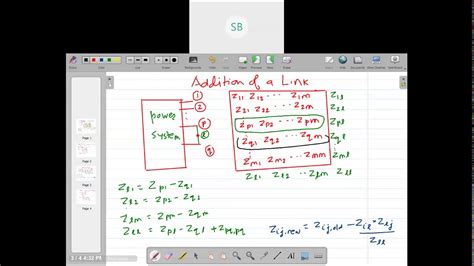 SB
Addition of a Link
power
system
1
2
p
l
q
Z11 Z12 ... Z1m Z1l
Z21 Z22 ... Z2m Z2l
Zp1 Zp2 ... Zpm Zpl
Zq1 Zq2 ... Zqm Zql
Zm1 Zm2 ... Zmm Zml
Zl1 Zl2 ... Zlm Zll
Zl1 = Zp1 - Zq1
Zl2 = Zp2 - Zq2
Zlm = Zpm - Zqm
Zll = Zpl - Zql + Zpq,pq
Zij,new = Zij,old - Zil * Zlj / Zll
3 / 4 4:32 PM